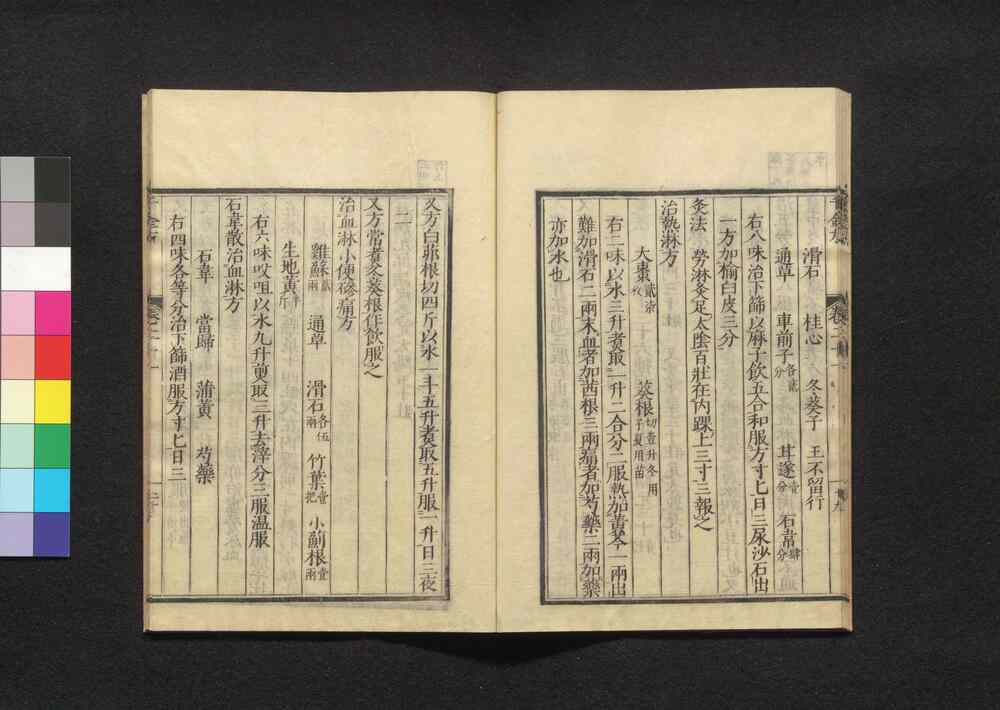 滑石　桂心　冬葵子　王不留行
通草　車前子各貳分　甘遂壹分　石韋肆分
右八味治下篩以麻子飲五合和服方寸匕日三尿沙石出
一方加榆白皮三分
灸法　勞淋灸足太陰百壯在内踝上三寸三報之
治熱淋方
大棗貳柒枚　葵根切壹升冬用子夏用苗
右二味以水三升煮取一升二合分二服熱加黃芩一兩出
難加滑石二兩末血者加茜根三兩痛者加芍藥二兩加藥
亦加水也
又方白茆根切四斤以水一斗五升煮取五升服一升日三夜
二
又方常煮冬葵根作飲服之
治血淋小便磣痛方
雞蘇貳兩　通草　滑石各伍兩　竹葉壹把　小薊根壹兩
生地黃半斤
右六味㕮咀以水九升煎取三升去滓分三服温服
石韋散治血淋方
石韋　當歸　蒲黃　芍藥
右四味各等分治下篩酒服方寸匕日三